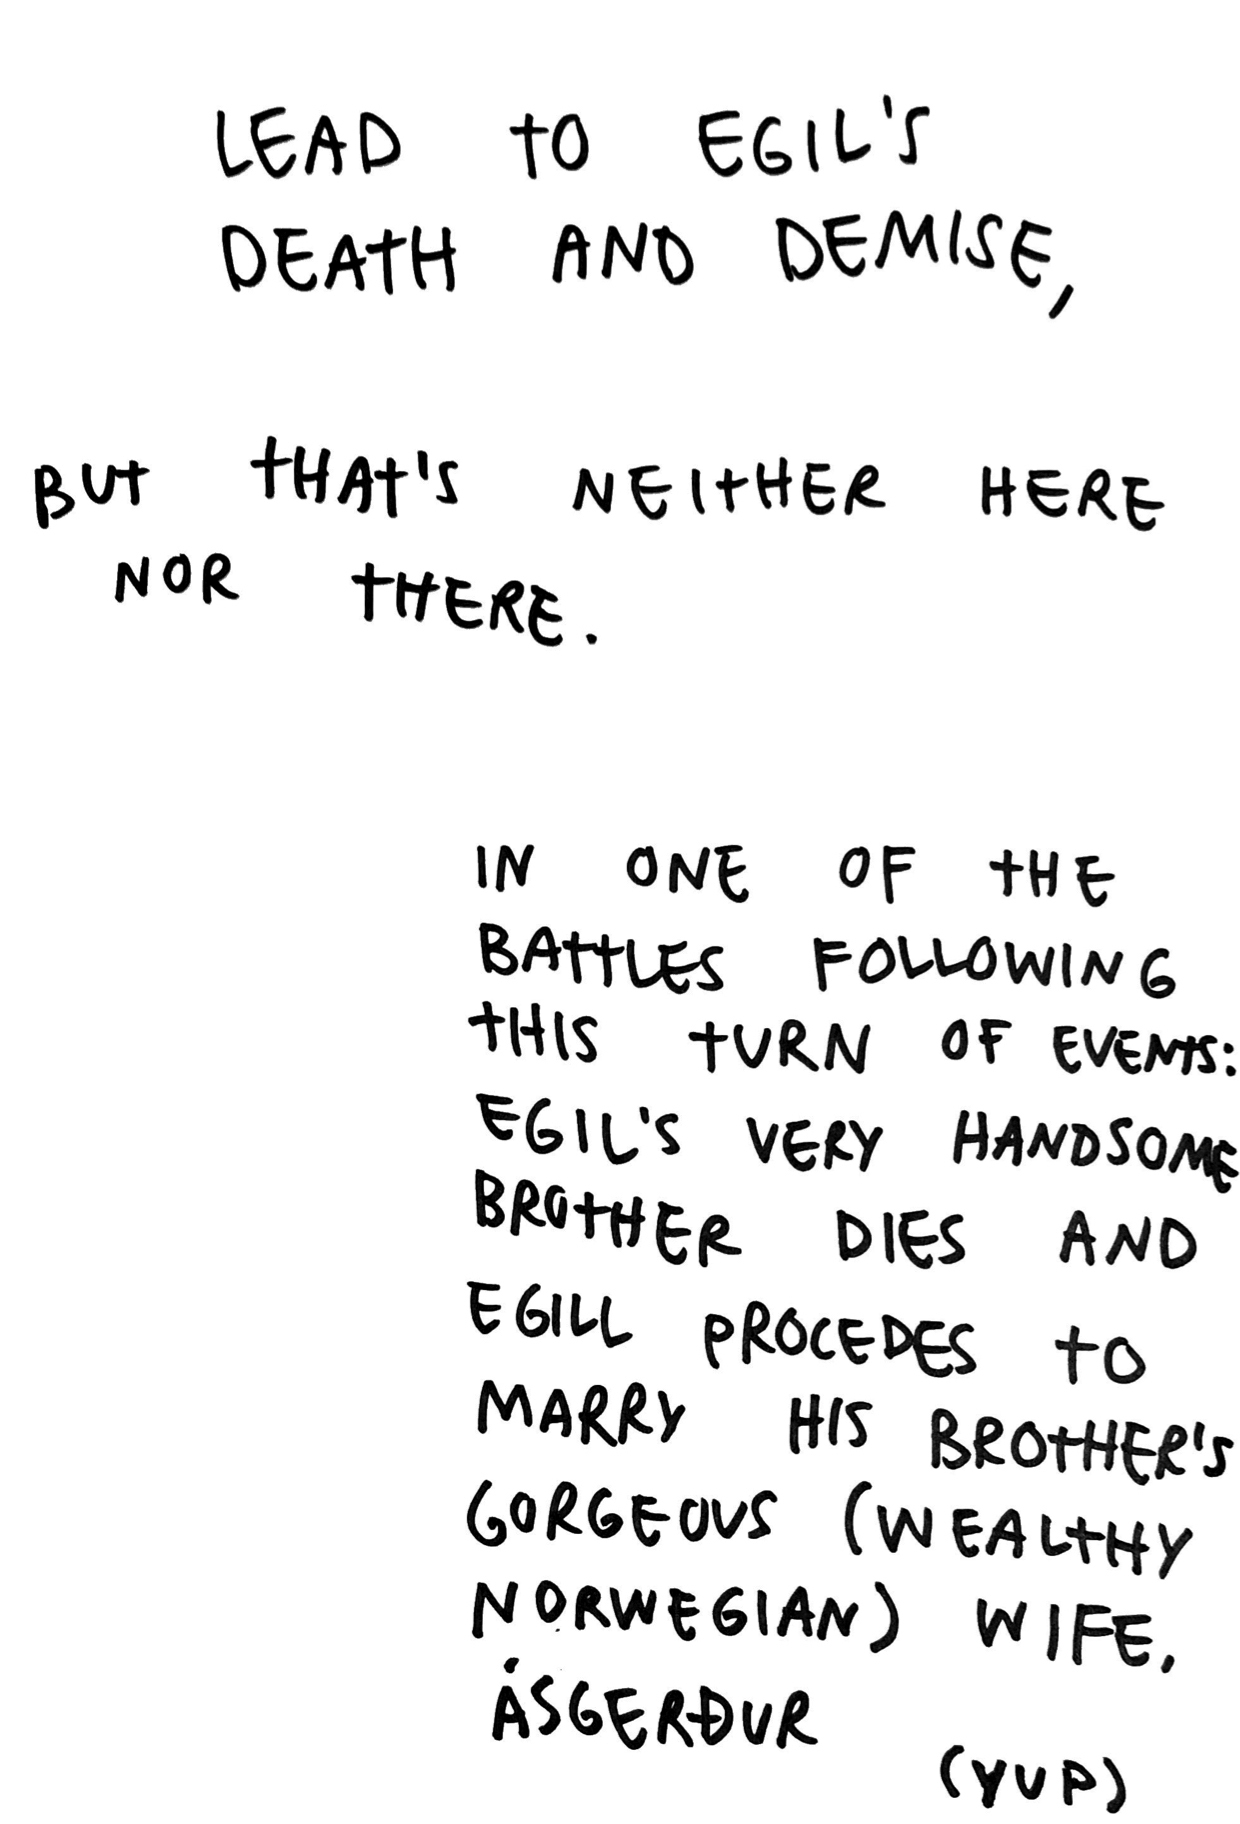 LEAD TO EGIL'S
DEATH AND DEMISE,
BUT THAT'S NEITHER HERE
NOR THERE.
IN ONE OF THE
BATTLES FOLLOWING
THIS TURN OF EVENTS:
EGIL'S VERY HANDSOME
BROTHER DIES AND
EGILL PROCEDES TO
MARRY HIS BROTHER'S
GORGEOUS (WEALTHY
NORWEGIAN) WIFE,
ÁSGERÐUR
(YUP)